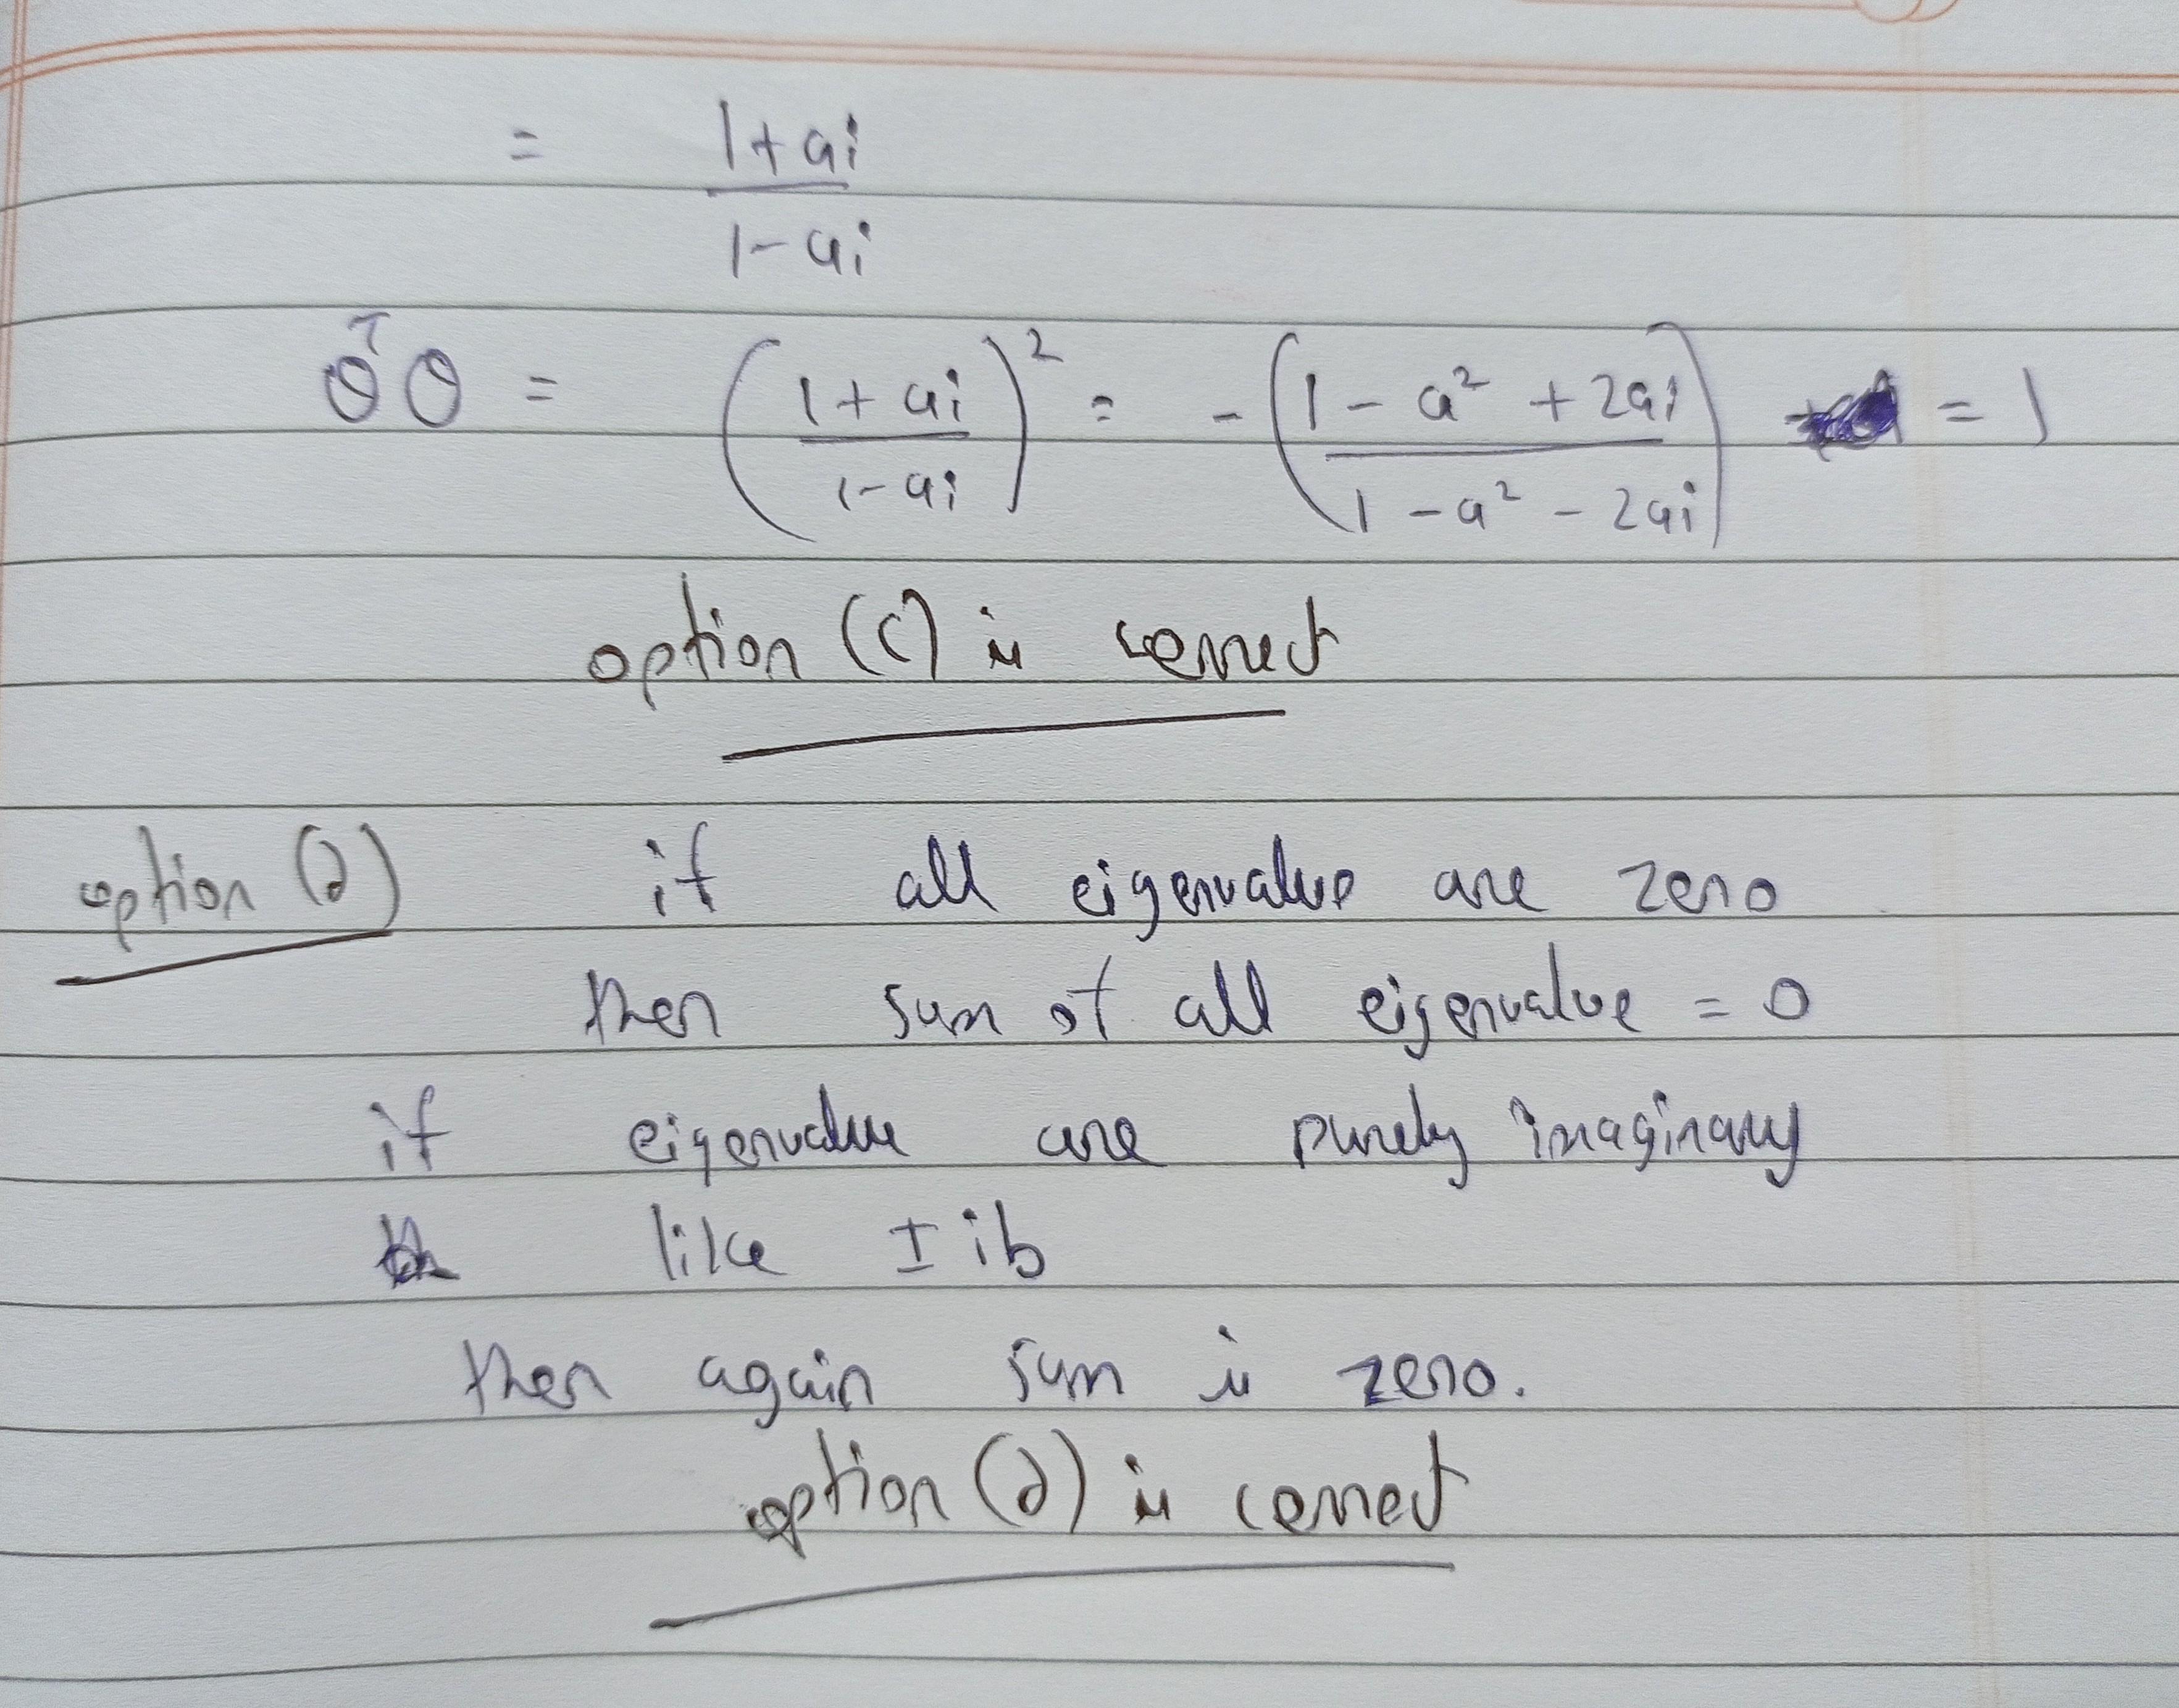 = (1+ai)/(1-ai)
Θ^T Θ = ((1+ai)/(1-ai))^2 = -((1-a^2+2ai)/(1-a^2-2ai)) = 1
option (c) is correct
option (d) if all eigenvalue are zero
then sum of all eigenvalue = 0
if eigenvalue are purely imaginary
like ± ib
then again sum is zero.
option (d) is correct